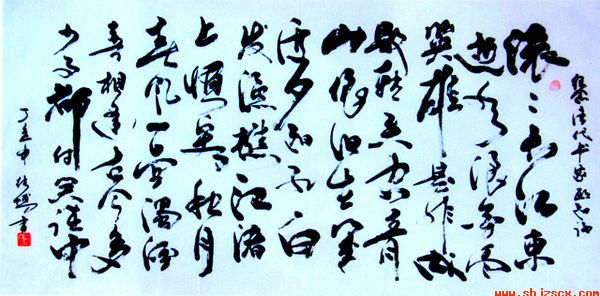 滚滚长江东
逝水浪花淘
英雄是非成
败转头空青
山依旧在几
度夕阳红白
发渔樵江渚
上惯看秋月
春风一壶浊酒
喜相逢古今多
少事都付笑谈中
丁亥年
书